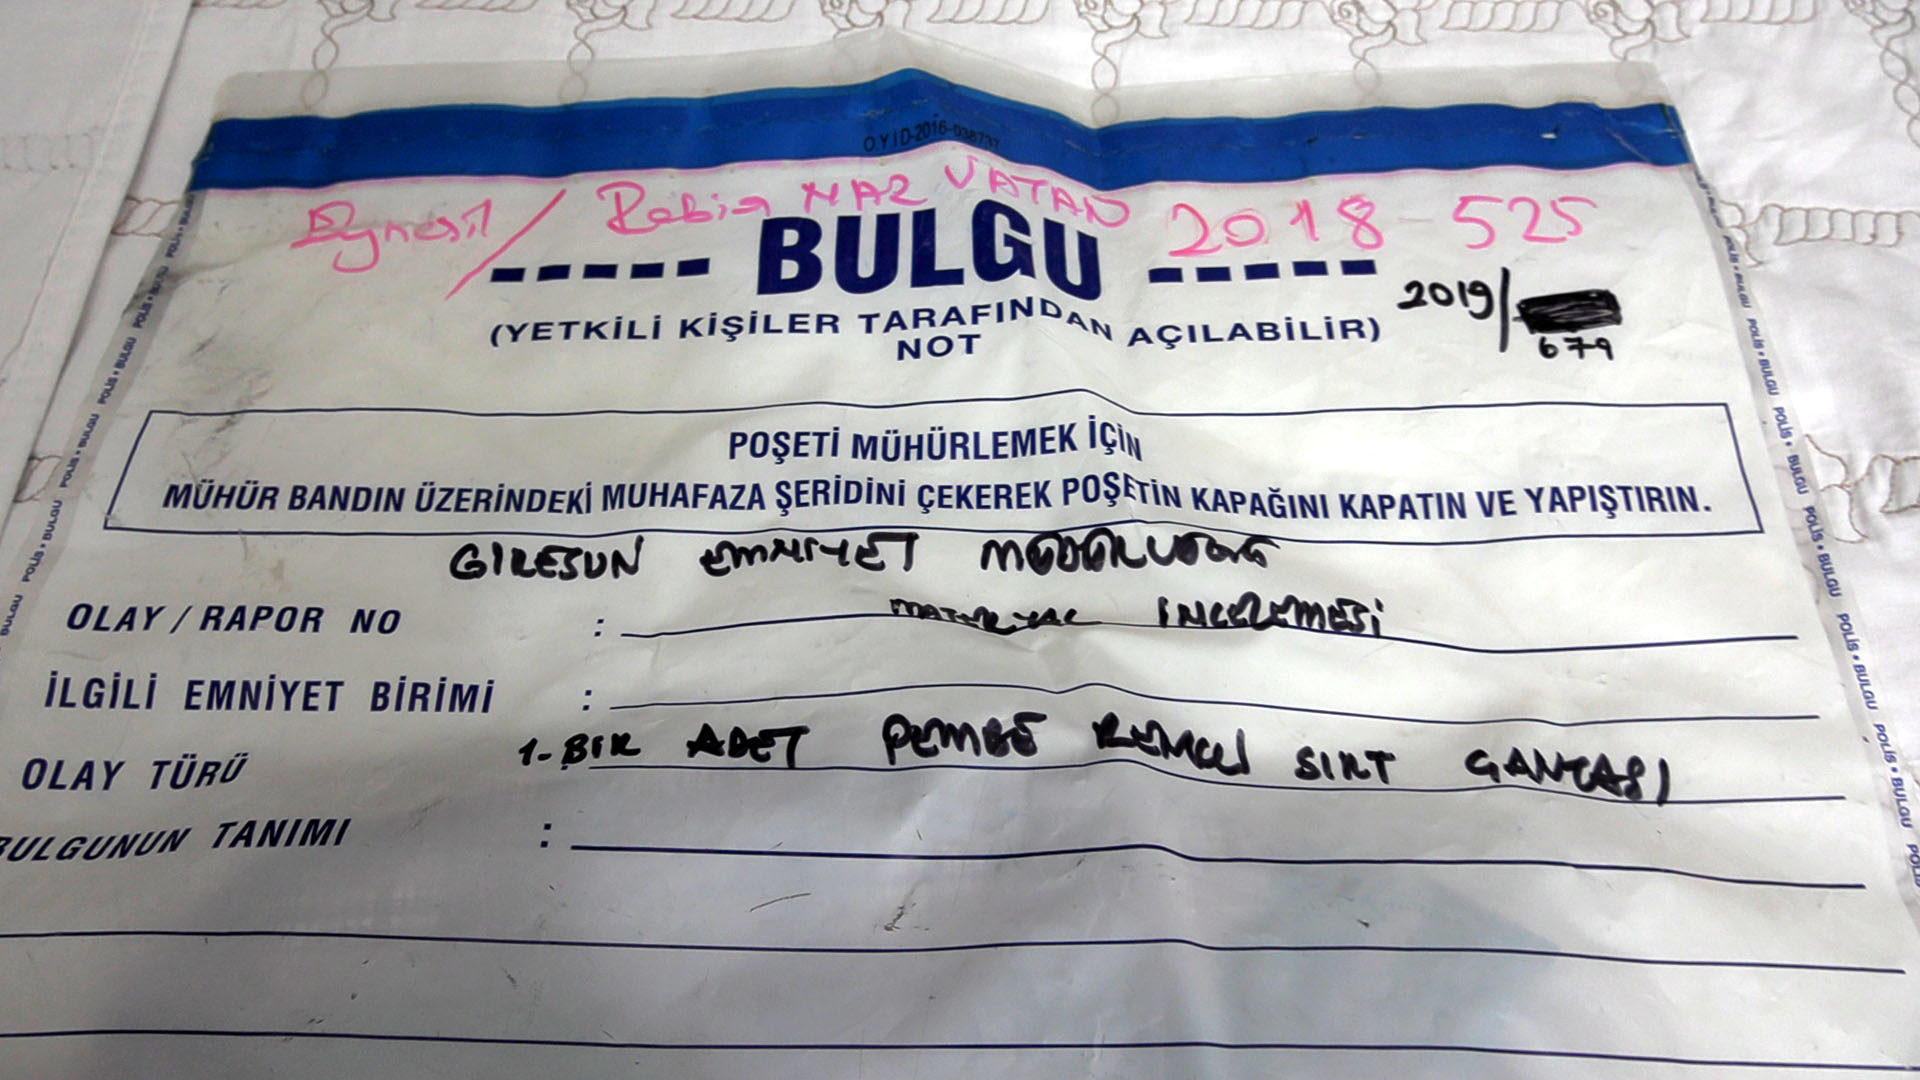 O.Y.İ.D-2016-038737
Eynesil / Rabia NAZ VATAN 2018-525
----- BULGU -----
(YETKİLİ KİŞİLER TARAFINDAN AÇILABİLİR)
2019/
679
NOT
POŞETİ MÜHÜRLEMEK İÇİN
MÜHÜR BANDIN ÜZERİNDEKİ MUHAFAZA ŞERİDİNİ ÇEKEREK POŞETİN KAPAĞINI KAPATIN VE YAPIŞTIRIN.
GİRESUN EMNİYET MÜDÜRLÜĞÜ
OLAY / RAPOR NO : MATERYAL İNCELEMESİ
İLGİLİ EMNİYET BİRİMİ :
OLAY TÜRÜ 1- BİR ADET PEMBE RENKLİ SIRT ÇANTASI
BULGUNUN TANIMI :
POLİS • BULGU POLİS • BULGU POLİS • BULGU POLİS • BULGU
POLİS • BULGU POLİS • BULGU POLİS • BULGU POLİS • BULGU